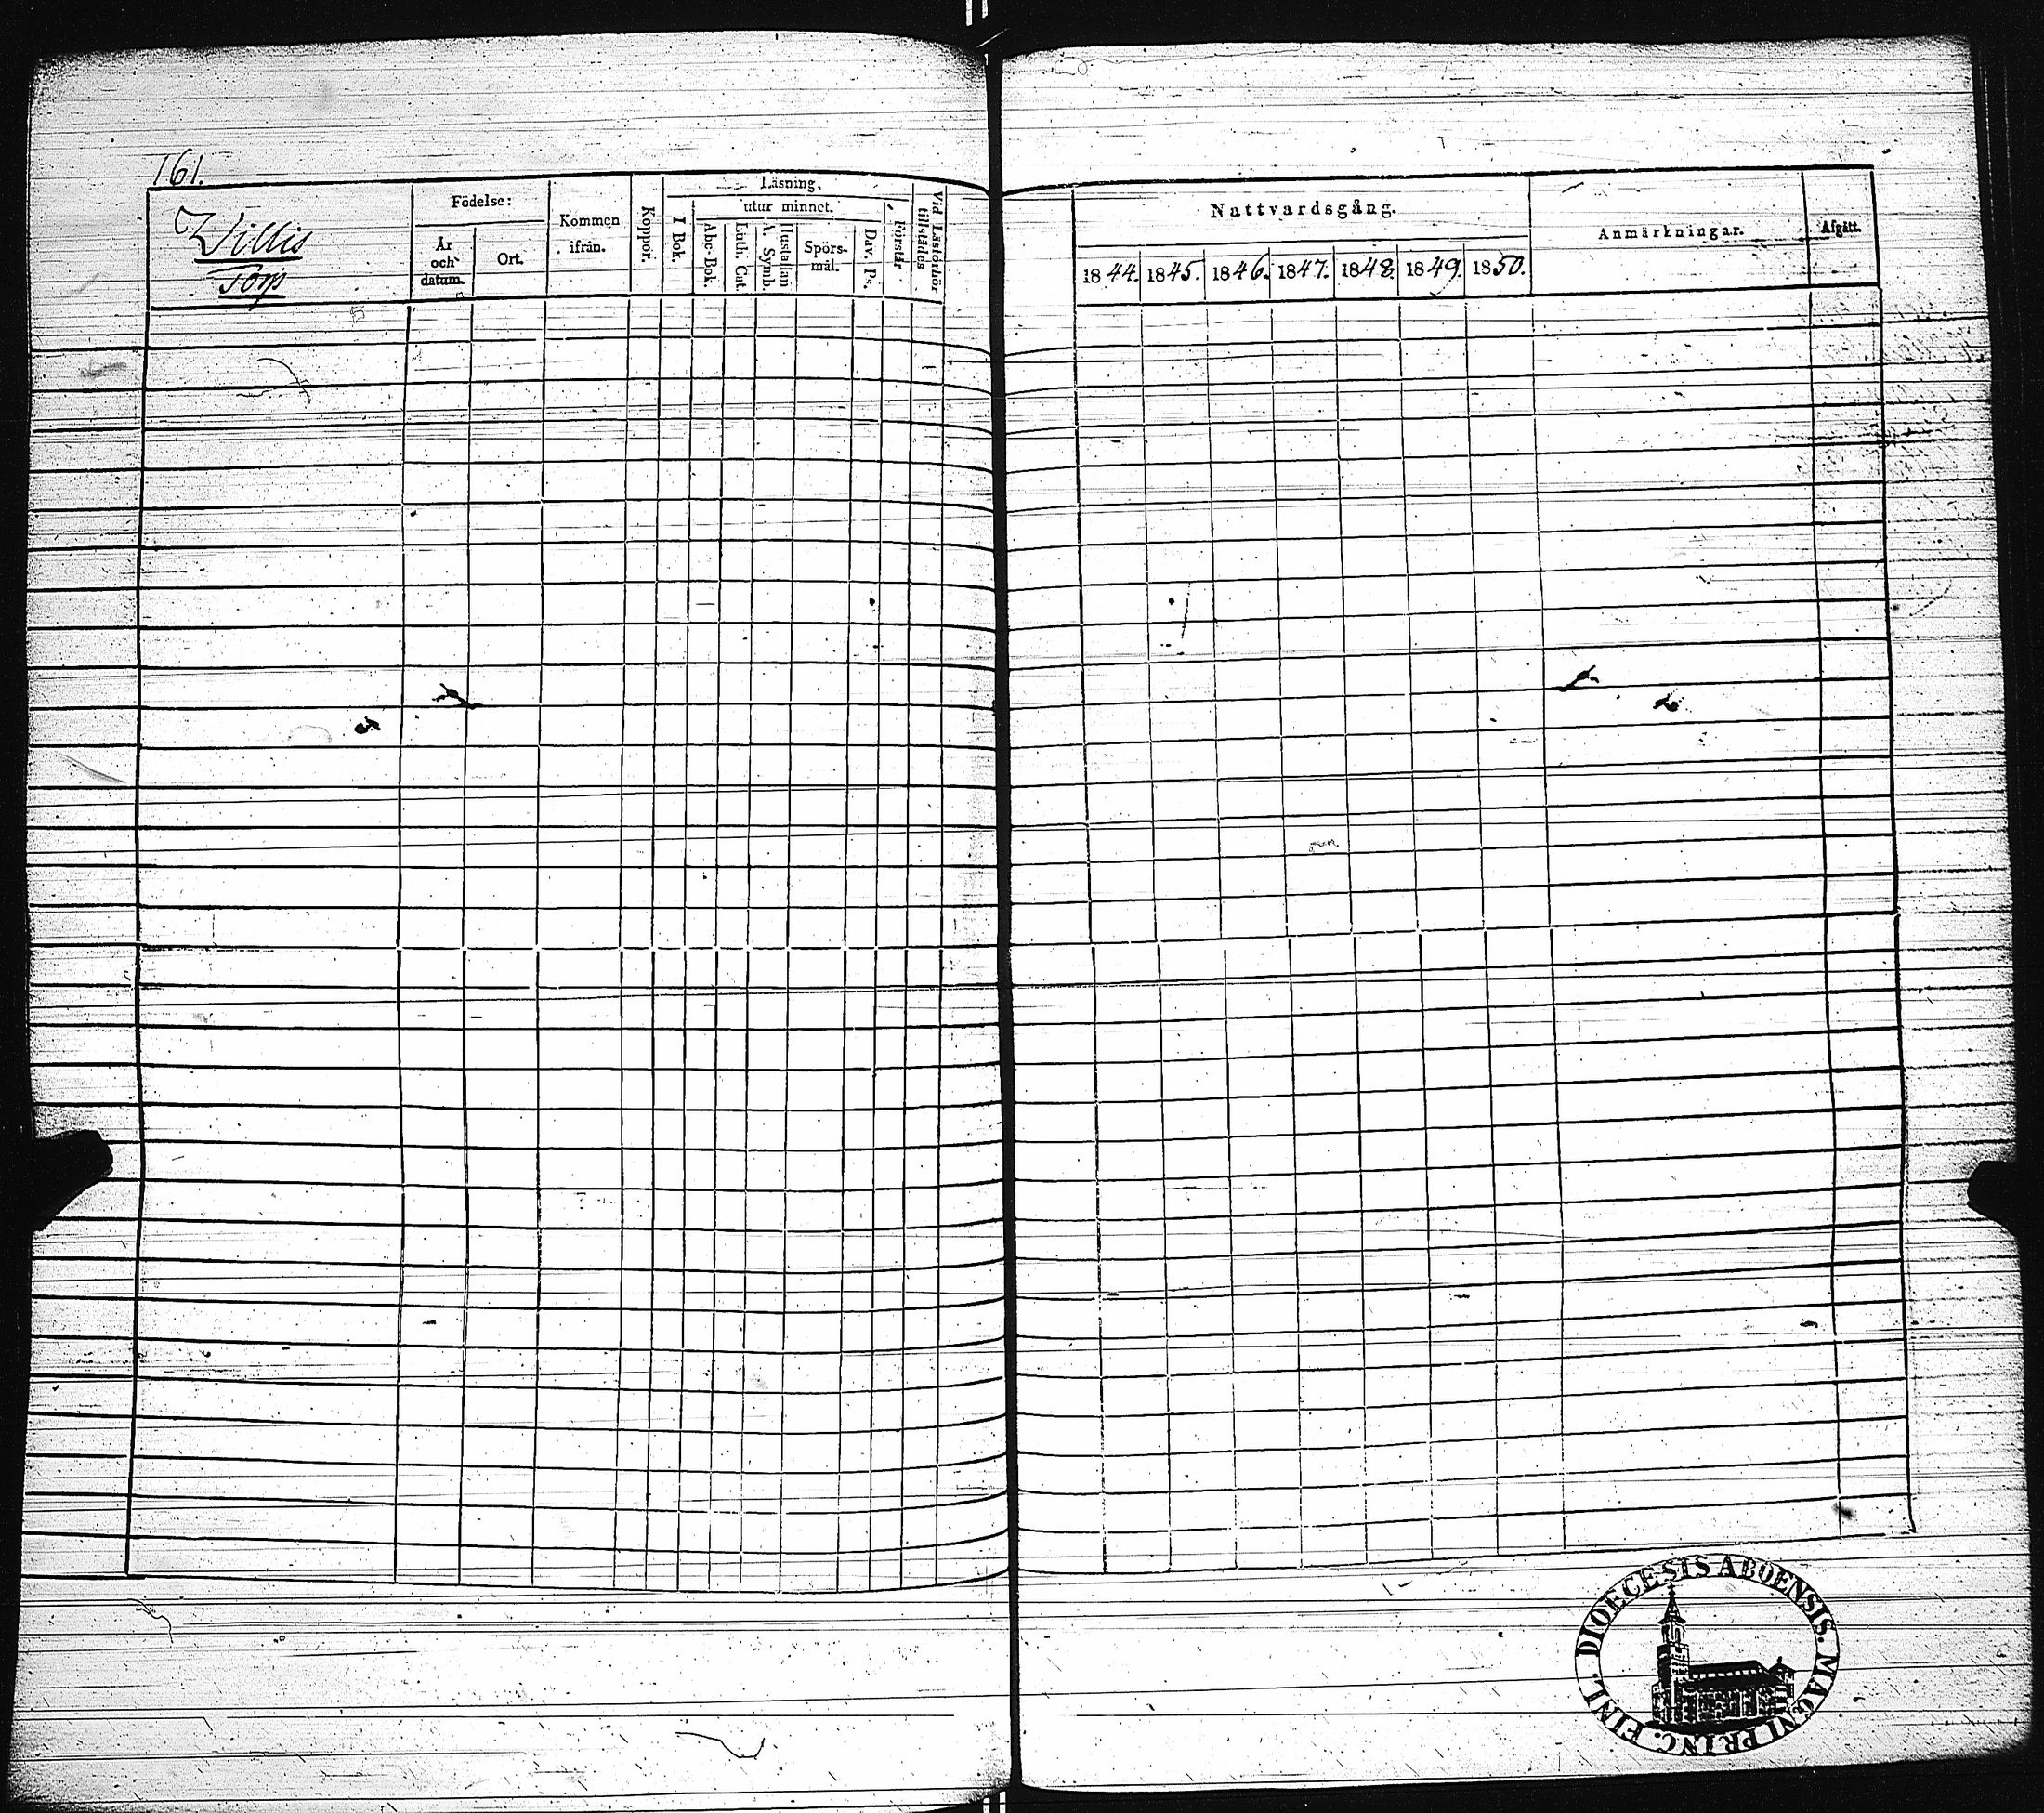 161.
Willis
Torp
Födelse:
År
och
datum.
Ort.
Kommen
ifrån.
Koppor.
Läsning,
I Bok.
utur minnet.
Abc-Bok.
Luth. Cat.
A. Symb.
Hustaflan
Spörs-
mål.
Dav. Ps.
Förstår
Vid Läsförhör
tillstädes
Nattvardsgång.
1844. 1845. 1846. 1847. 1848. 1849. 1850.
Anmärkningar.
Afgått.
DIOECESIS ABOENSIS. MAGNI PRINC. FINL.